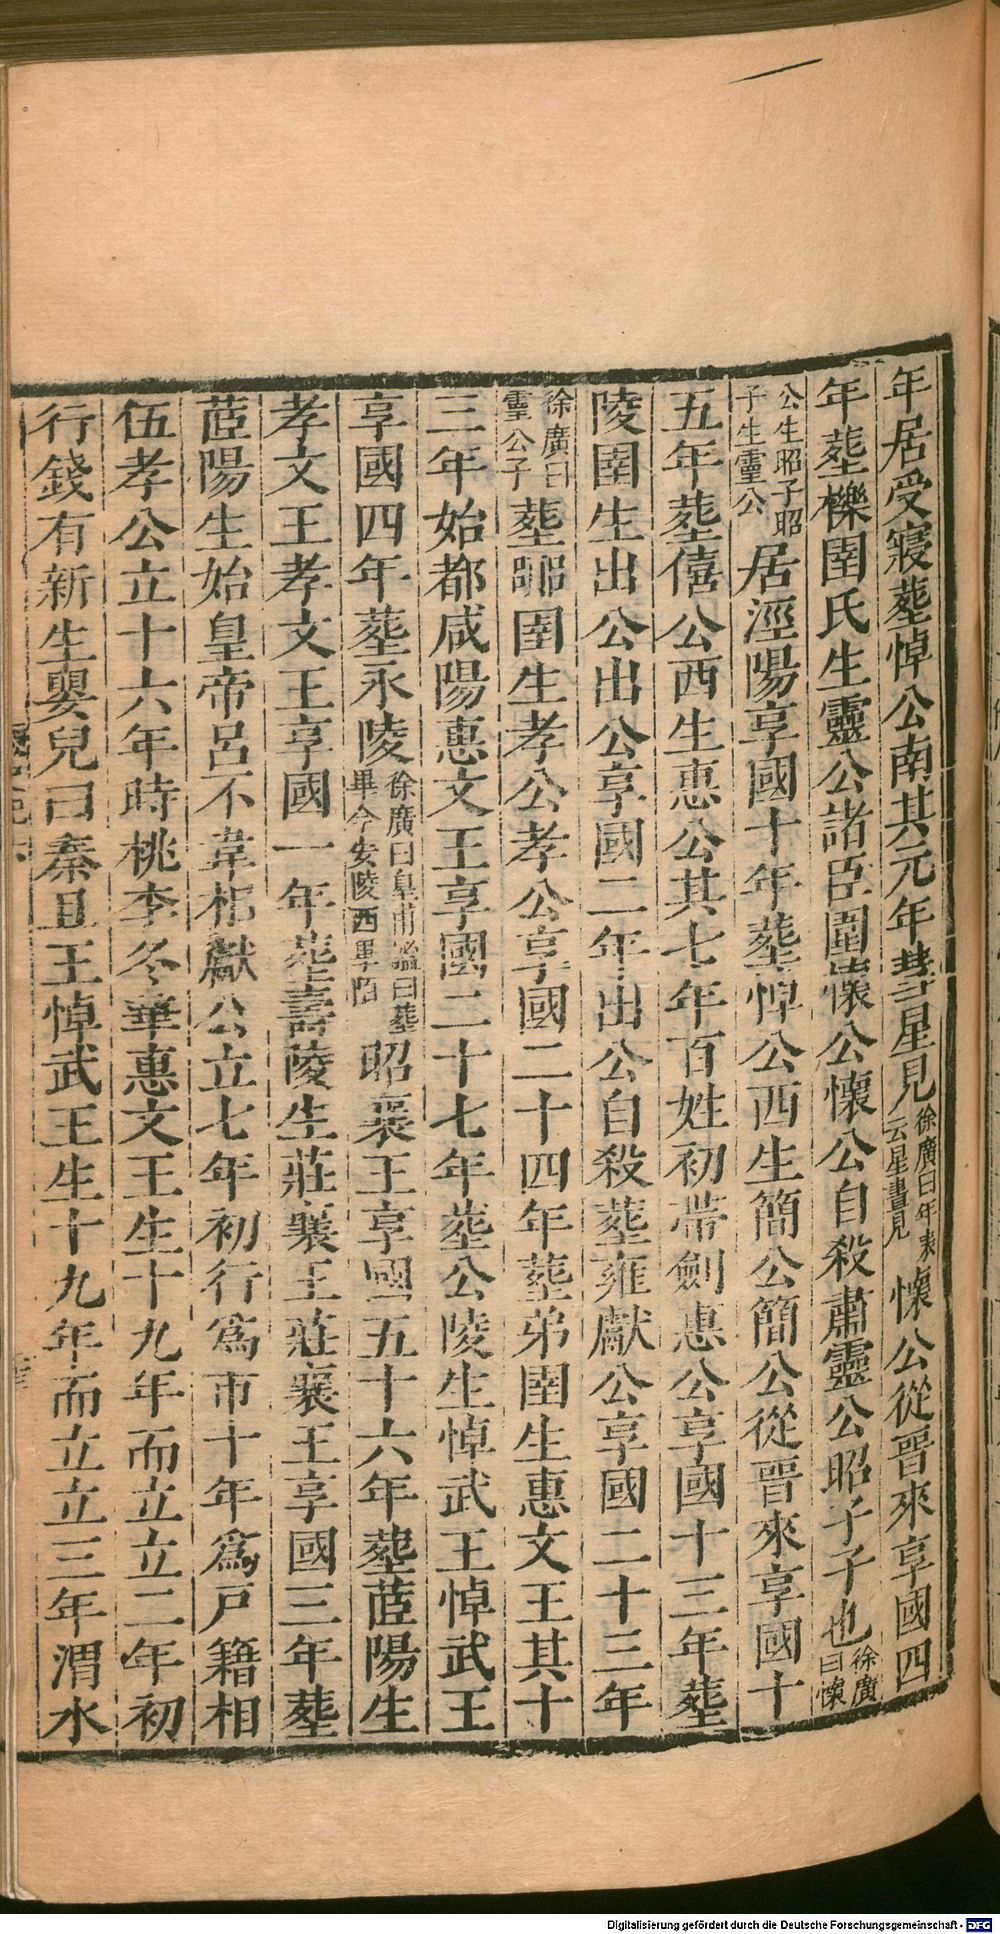 年居受寢葬悼公南其元年彗星見徐廣曰年表云星晝見懷公從晉來享國四
年葬櫟圉氏生靈公諸臣圍懷公懷公自殺肅靈公昭子子也徐廣曰懷
公生昭子昭子生靈公居涇陽享國十年葬悼公西生簡公簡公從晉來享國十
五年葬僖公西生惠公其七年百姓初帶劍惠公享國十三年葬
陵圉生出公出公享國二年出公自殺葬雍獻公享國二十三年
徐廣曰靈公子葬嚻圉生孝公孝公享國二十四年葬弟圉生惠文王其十
三年始都咸陽惠文王享國二十七年葬公陵生悼武王悼武王
享國四年葬永陵徐廣曰皇甫謐曰葬畢今安陵西畢陌昭襄王享國五十六年葬茝陽生
孝文王孝文王享國一年葬壽陵生莊襄王莊襄王享國三年葬
茝陽生始皇帝呂不韋相獻公立七年初行爲市十年爲戶籍相
伍孝公立十六年時桃李冬華惠文王生十九年而立立二年初
行錢有新生嬰兒曰秦且王悼武王生十九年而立立三年渭水
Digitalisierung gefördert durch die Deutsche Forschungsgemeinschaft - DFG